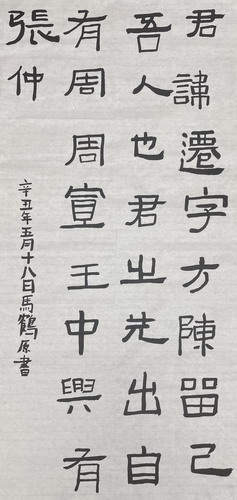 君諱遷字方陳留己
吾人也君之先出自
有周周宣王中興有
張仲
辛丑年五月十八日馬鶴原書